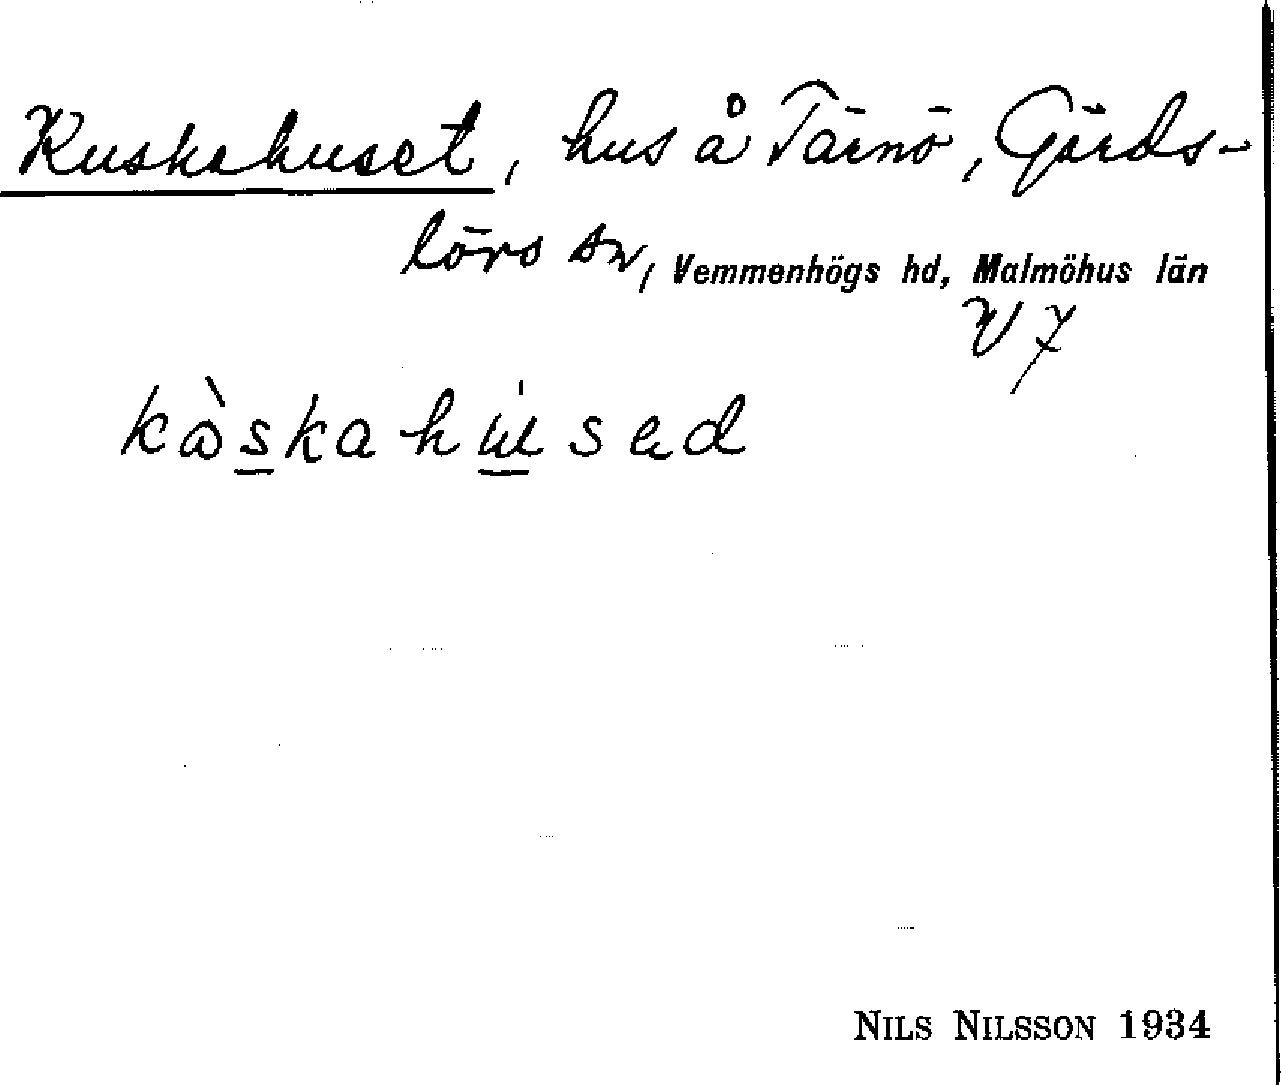 Kuskahuset, hus å Tärnö, Gärds-
lövs sn, Vemmenhögs hd, Malmöhus län
V 7
kɷ̀skahu̍sed
NILS NILSSON 1934